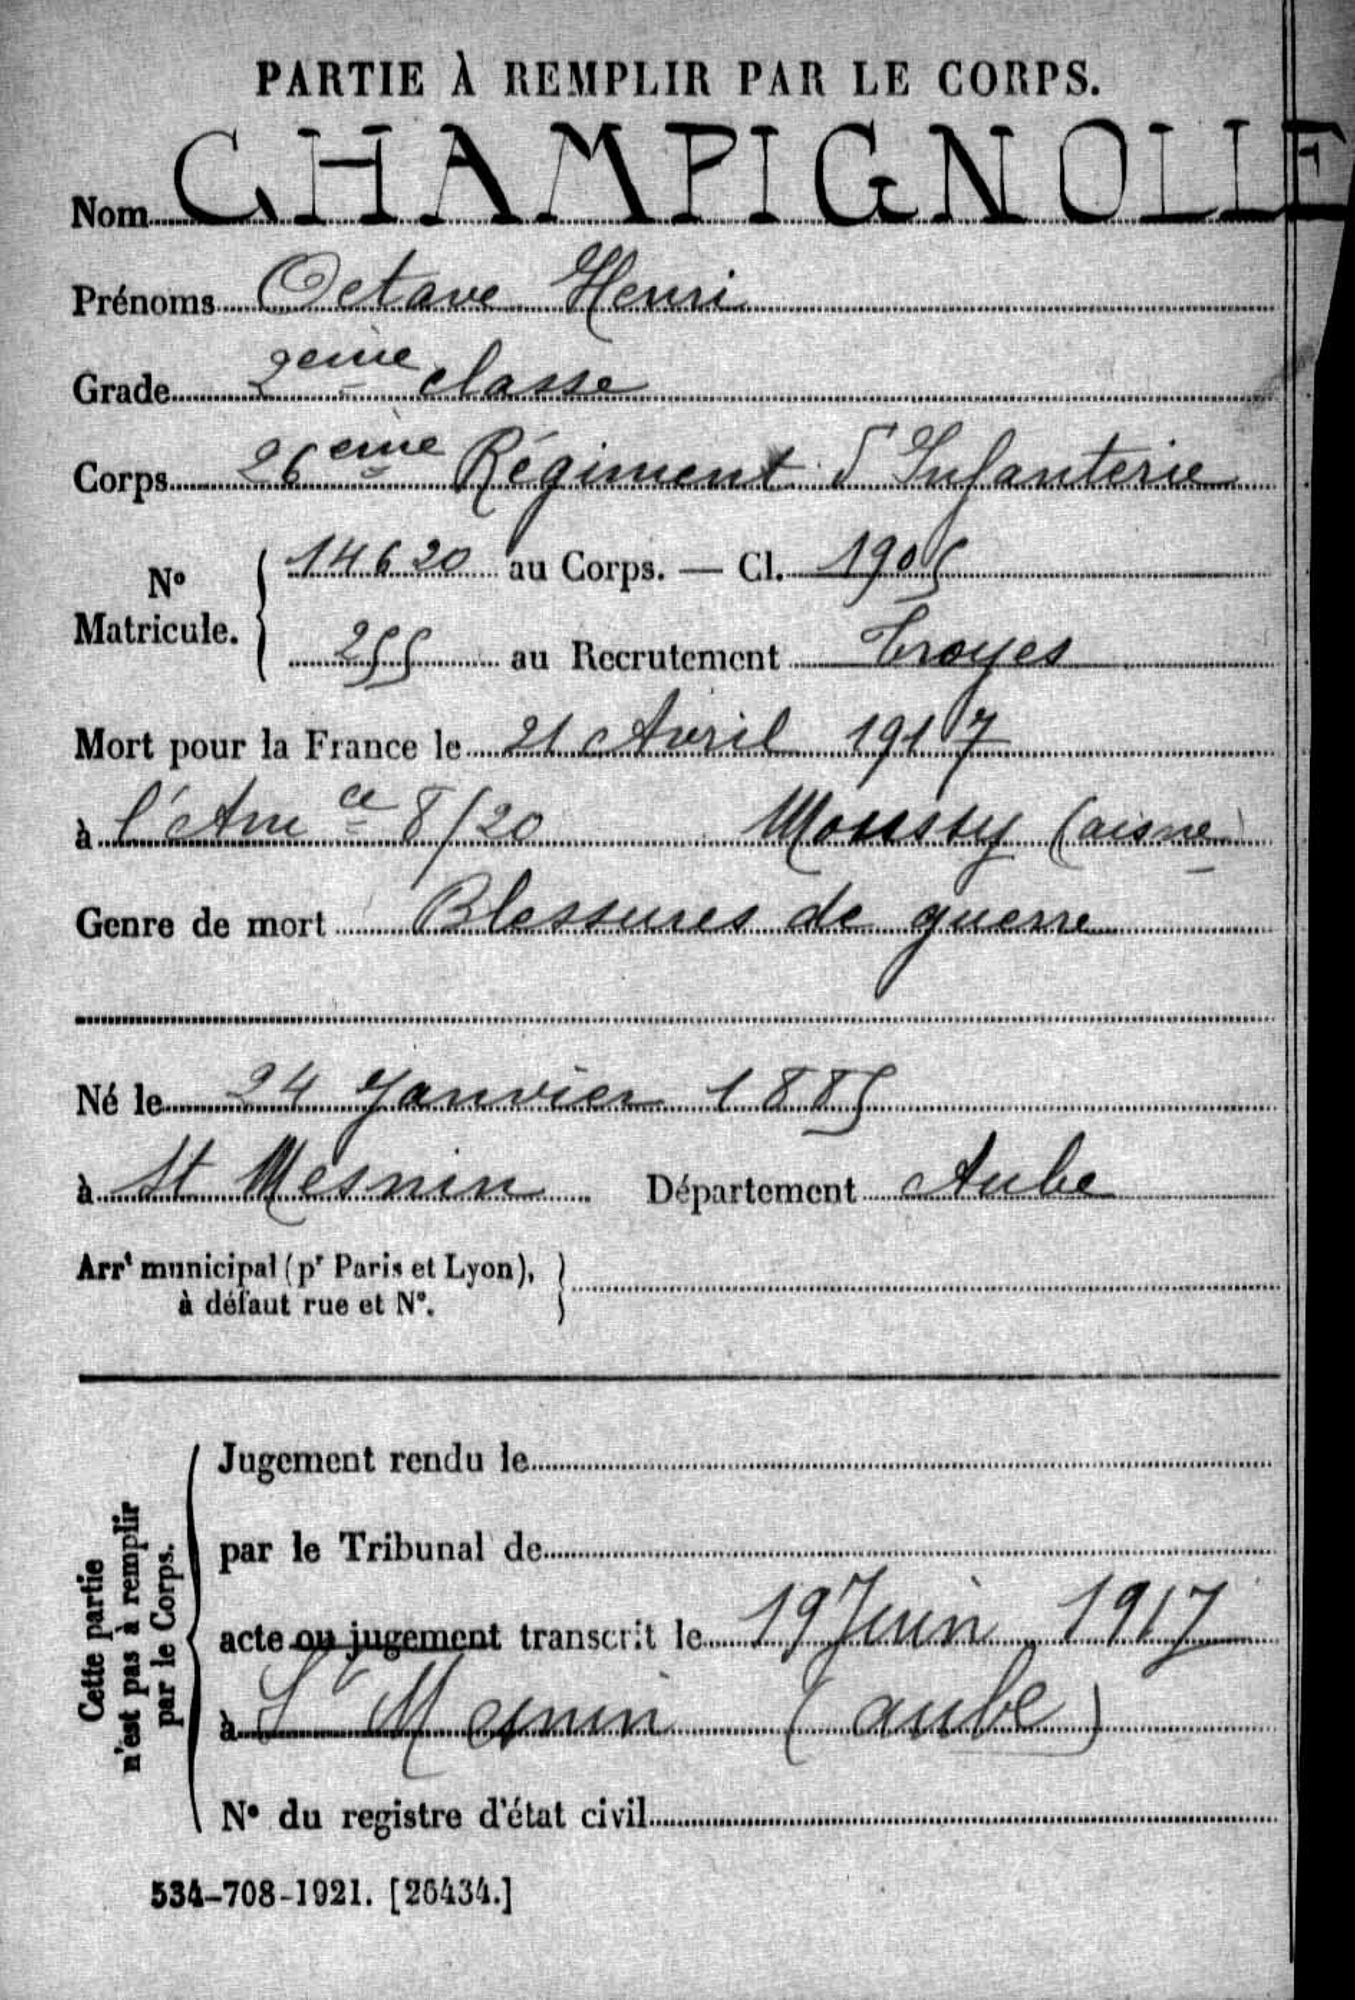 PARTIE À REMPLIR PAR LE CORPS.
Nom CHAMPIGNOLLE
Prénoms Octave Henri
Grade 2eme classe
Corps 26eme Régiment d'Infanterie
N° Matricule. 14620 au Corps. — Cl. 1905
255 au Recrutement Troyes
Mort pour la France le 21 Avril 1917
à l'Amce 8/20 Moussy (aisne)
Genre de mort Blessures de guerre
Né le 24 Janvier 1885
à St Mesnin Département Aube
Arrt municipal (pr Paris et Lyon),
à défaut rue et N°.
Cette partie
n'est pas à remplir
par le Corps.
Jugement rendu le
par le Tribunal de
acte ou jugement transcrit le 19 Juin 1917
à St Mesnin (aube)
N° du registre d'état civil
534-708-1921. [26434.]